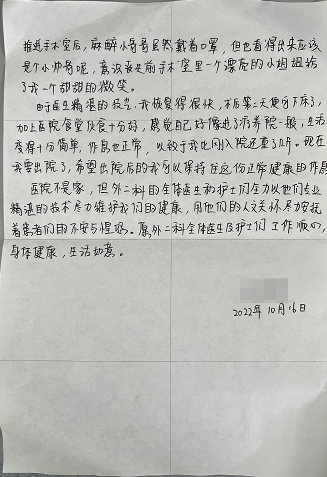 推进手术室后，麻醉小哥哥虽然戴着口罩，但也看得出来应该
是个小帅哥呢，意识丧失前手术室里一个漂亮的小姐姐给
了我一个甜甜的微笑。
由于医生精湛的技艺，我恢复得很快，术后第三天便可下床了，
加上医院食堂伙食十分好，感觉自己好像进了疗养院一般，生活
变得十分简单，作息也正常，以致于我比刚入院还重了几斤。现在
我要出院了，希望出院后的我可以保持住这份正常健康的作息
医院不是家，但外二科的全体医生和护士们全力以他们专业
精湛的技术尽力维护我们的健康，用他们的人文关怀尽力安抚
着患者们的不安与惶恐。愿外二科全体医生及护士们工作顺心，
身体健康，生活如意。
2022年10月16日